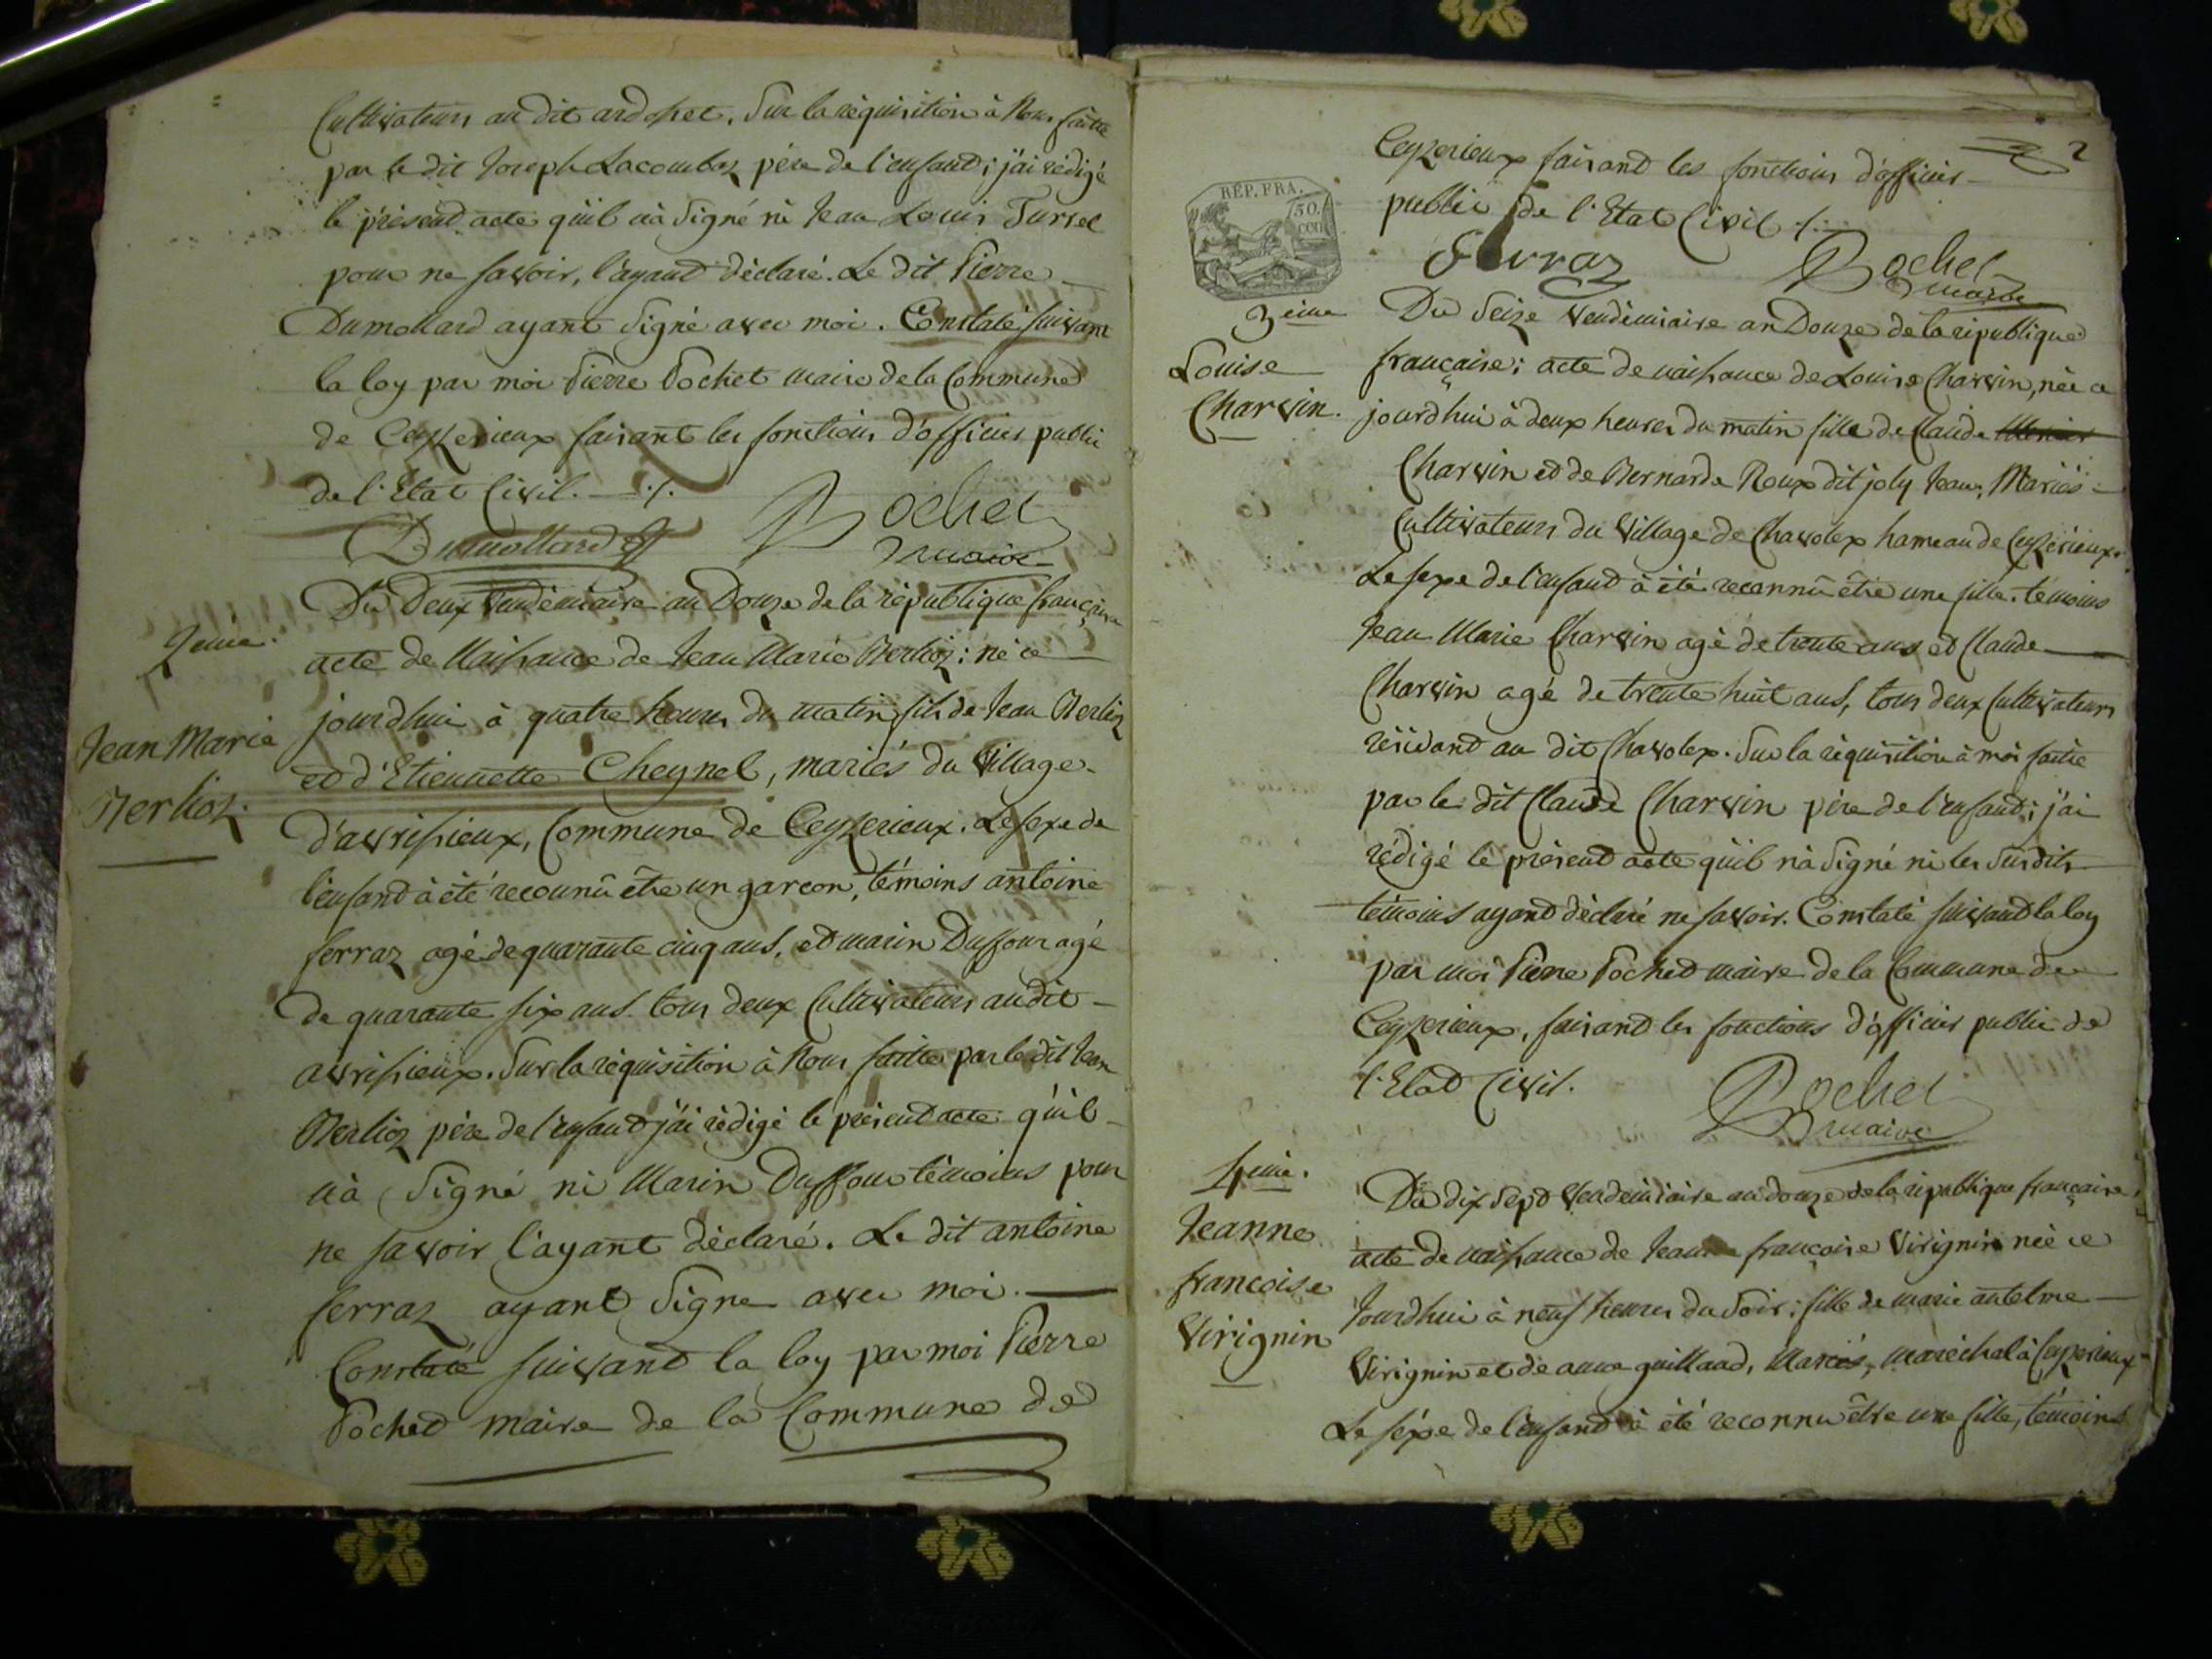 Cultivateurs au dit ardosset. Sur la réquisition à Nous faitte
par le dit Joseph Lacombaz père de l'enfant; j'ai rédigé
le présent acte qu'il n'à Signé ni Jean Louis Tursel
pour ne savoir, l'ayant déclaré. Le dit Pierre
Dumollard ayant Signé avec moi. Constaté suivant
la loy par moi Pierre Pochet maire de la Commune
de Ceyzerieux faisant les fonctions d'officier public
de l'Etat Civil. ./.
Dumollard Pochet
maire
2eme. Du Deux Vendémiaire an Douze de la république française
acte de Naissance de Jean Marie Berlioz: né ce
Jean Marie
Berlioz.
jourdhui à quatre heures du matin fils de Jean Berlioz
et d'Etiennette Cheynel, mariés du Village
d'avrissieux, Commune de Ceyzerieux. Le sexe de
l'enfant à été reconnû être un garcon, témoins antoine
ferraz agé de quarante cinq ans, et marin Duffour agé
de quarante six ans tous deux Cultivateurs audit
avrissieux. Sur la réquisition à Nous faitte par le dit Jean
Berlioz père de l'enfant j'ai rédigé le présent acte qu'il
n'à Signé ni Marin Duffour témoins pour
ne savoir l'ayant déclaré. Le dit antoine
ferraz ayant Signe avec moi.
Constaté suivant la loy par moi Pierre
Pochet maire de la Commune de
2
Ceyzerieux faisant les fonctions d'officier
public de l'Etat Civil ./.
REP. FRA.
50.
Ferraz Pochet
maire
3eme
Louise
Charvin.
Du Seize Vendémiaire an Douze de la république
française; acte de naissance de Louise Charvin, née ce
jourdhui à deux heures du matin fille de Claude
Charvin et de Bernarde Roux dit joly Jean, Mariés
Cultivateurs du Village de Chavolex hameau de Ceyzérieux.
Le sexe de l'enfant à été reconnû être une fille. témoins
Jean Marie Charvin agé de trente ans et Claude
Charvin agé de trente huit ans, tous deux Cultivateurs
résidant au dit Chavolex. Sur la réquisition à moi faitte
par le dit Claude Charvin père de l'enfant; j'ai
rédigé le présent acte qu'il n'à Signé ni les Susdits
témoins ayant déclaré ne savoir. Constaté suivant la loy
par moi Pierre Pochet maire de la Commune de
Ceyzerieux, faisant les fonctions d'officier public de
l'Etat Civil.
Pochet
maire
4eme.
Jeanne
francoise
Virignin
Du dix Sept Vendémiaire an douze de la république française,
acte de naissance de Jeanne françoise Virignin née ce
Jourdhui à neuf heures du Soir; fille de marie antelme
Virignin et de anne guilland, Mariés, maréchal à Ceyzerieux
Le séxe de l'enfant à été reconnu être une fille, témoins